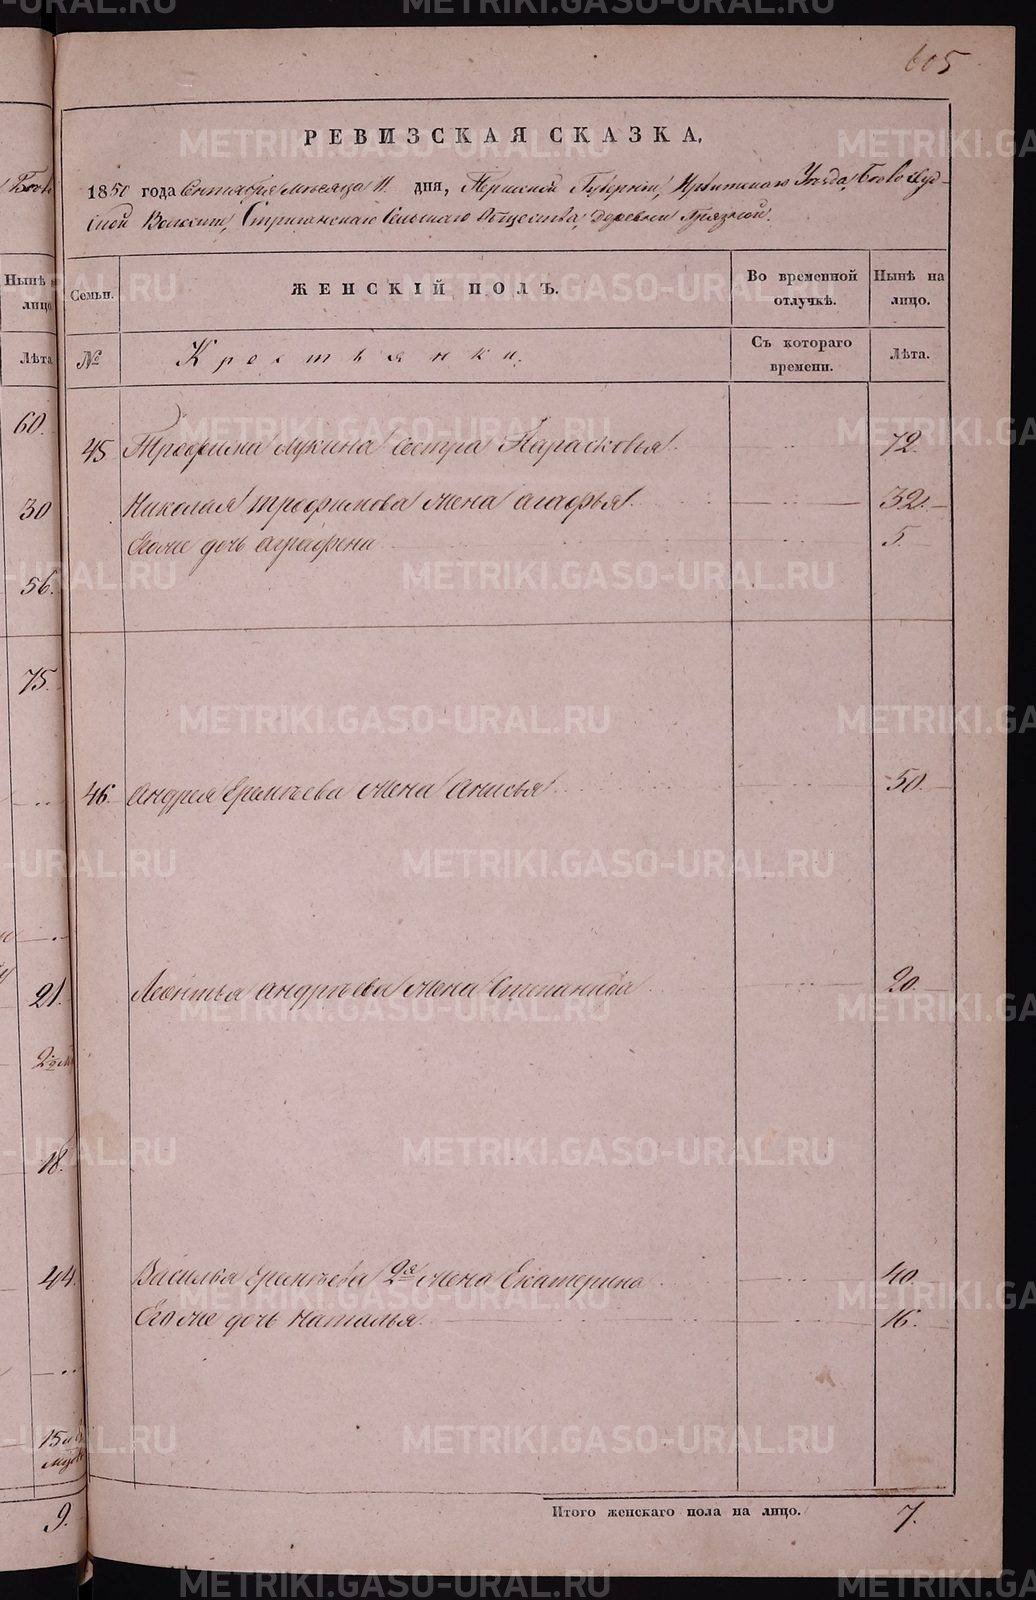 605
РЕВИЗСКАЯ СКАЗКА,
1850 года Сентября месяца 11 дня, Пермской Губернии, Ирбитского Уезда, Бобо
ской Волости, Стриганскаго Сельскаго Общества, деревни Грязной.
Нынѣ
лицо
Семьи.
ЖЕНСКІЙ ПОЛЪ.
Во временной
отлучкѣ.
Нынѣ на
лицо.
Лѣта
№
Крестьянки.
Съ котораго
времени.
Лѣта.
60.
45 Трофима Лукина сестра Парасковья 72.
30 Николая Трофимова жена Агафья 32.
Его же дочь Аграфена 5.
56.
75.
46. Андрея Еремѣева жена Анисья 50.
21. Леонтья Андрѣева жена Степанида 20.
18.
44. Василья Еремѣева 2я жена Екатерина 40.
Его же дочь Наталья 16.
9.
Итого женскаго пола на лицо. 7.
METRIKI.GASO-URAL.RU